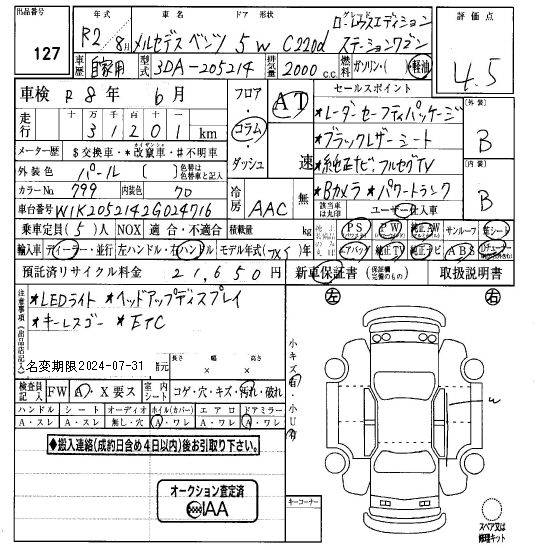 出品番号 127
年式 R2年 8月
車名 メルセデスベンツ
ドア 形状 5W
C220d
グレード
ローレウスエディション
ステーションワゴン
評価点 4.5
車歴 自家用
型式 3DA-205214
排気量 2000 c.c.
燃料 ガソリン・(軽油)
車検 R8年 6月
フロア・コラム・ダッシュ
AT 速
セールスポイント
走行 十万 万 千 百 十 一
3 1 2 0 1 km
*レーダーセーフティパッケージ
外装 B
メーター歴 $交換車・*改竄車・#不明車
*ブラックレザーシート
外装色 パール
色替は色替車と記入
*純正ナビ・フルセグTV
内装 B
カラーNo. 799 内装色 70
冷房 AAC 無
*Bカメラ *パワートランク
該当車は丸印
ユーザー仕入車
車台番号 W1K2052142G024716
乗車定員(5)人 NOX 適合・不適合 積載量 kg
PS PW 純正AW サンルーフ 革シート
輸入車 ディーラー・並行 左ハンドル・右ハンドル モデル年式( )年
エアバッグ 純正TV 純正ナビ ABS
預託済リサイクル料金 21,650円
新車保証書 (保証欄定義のもの) 取扱説明書
注意事項(出品店記入)
*LEDライト *ヘッドアップディスプレイ
*キーレスゴー *ETC
名変期限2024-07-31
長さ × 幅 × 高さ
左 右
小キズ有
小U有
W
検査員記入 FW A・X要ス 室内シート コゲ・穴・キズ・汚れ・破れ
ハンドル シート オーディオ ホイル(カバー) エアロ ドアミラー
A・スレ A・スレ 無し・穴 A・ワレ A・ワレ A・ワレ
◆搬入連絡(成約日含め4日以内)後お引取り下さい。
オークション査定済
IAA
キーコーナー
スペア又は
修理キット